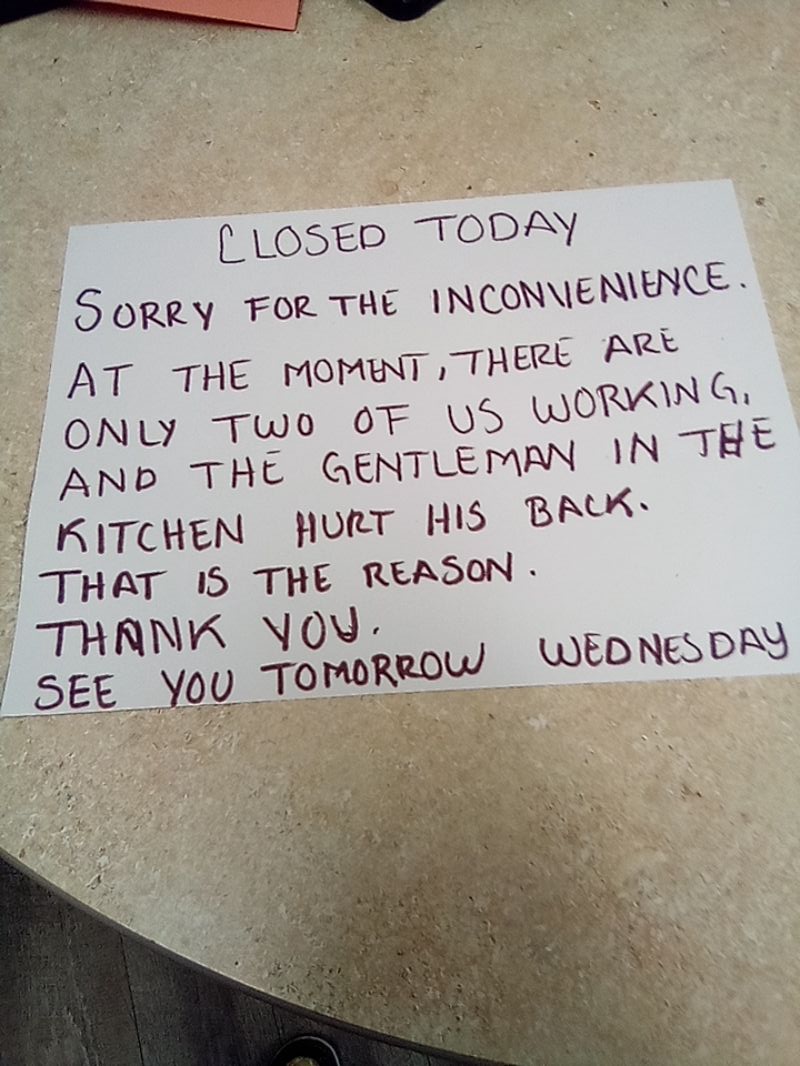 CLOSED TODAY
SORRY FOR THE INCONVENIENCE.
AT THE MOMENT, THERE ARE
ONLY TWO OF US WORKING,
AND THE GENTLEMAN IN THE
KITCHEN HURT HIS BACK.
THAT IS THE REASON.
THANK YOU.
SEE YOU TOMORROW WEDNESDAY